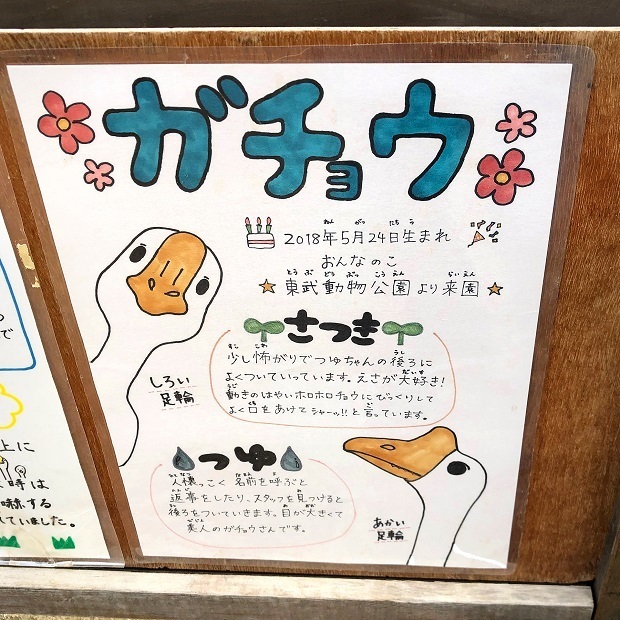 ガチョウ
2018年5月24日生まれ
おんなのこ
東武動物公園より来園
さつき
少し怖がりでつゆちゃんの後ろに
よくついていっています。えさが大好き!
動きのはやいホロホロチョウにびっくりして
よく口をあけてシャーッ!!と言っています。
しろい
足輪
つゆ
人懐っこく名前を呼ぶと
返事をしたり、スタッフを見つけると
後ろをついていきます。目が大きくて
美人のガチョウさんです。
あかい
足輪
で
上に
時は
する
していました。